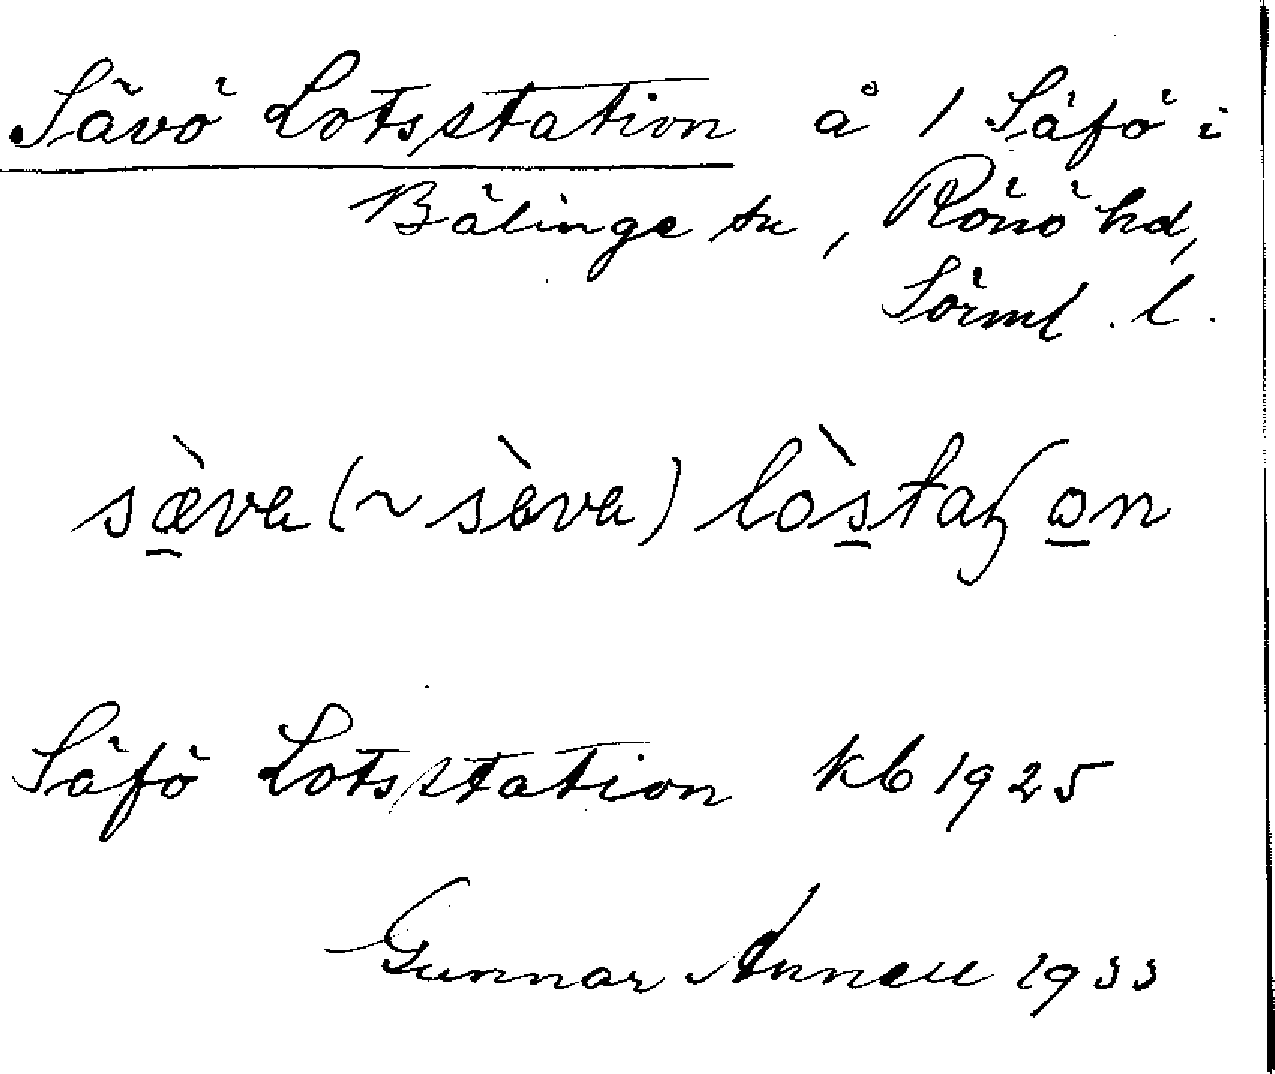 Sävö Lotsstation å 1 Säfö i
Bälinge sn, Rönö hd,
Sörml. l.
sæ̀va (~ sàva) lòstaʃon
Säfö Lotsstation kb 1925
Gunnar Annell 1933